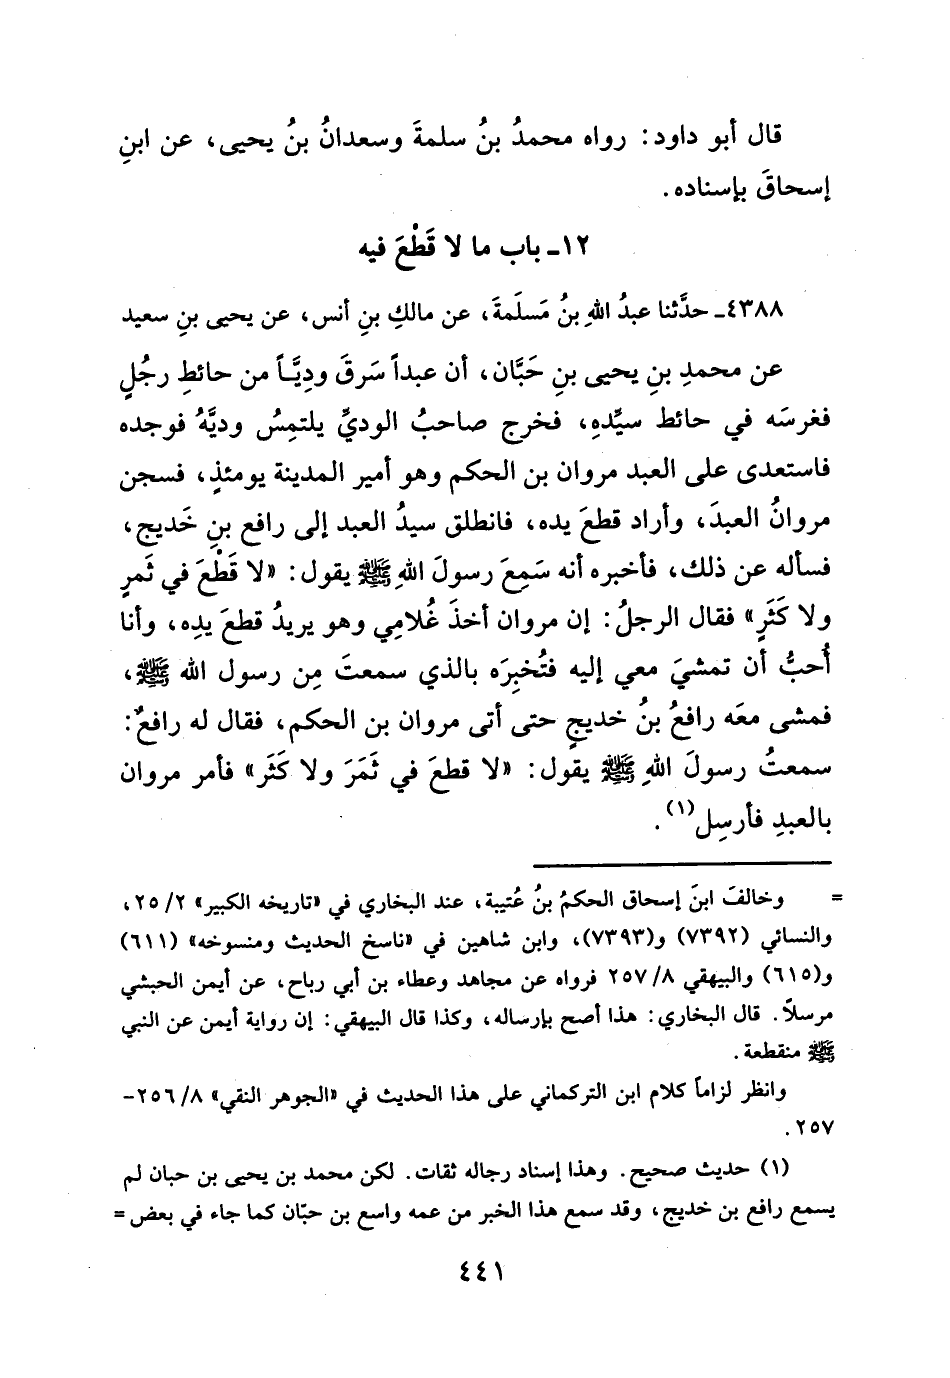 قال أبو داود: رواه محمدُ بنُ سلمةَ وسعدانُ بنُ يحيى، عن ابنِ
إسحاقَ بإسناده.
١٢ـ باب ما لا قَطْعَ فيه
٤٣٨٨ـ حدَّثنا عبدُ اللهِ بنُ مَسلَمةَ، عن مالكِ بنِ أنس، عن يحيى بنِ سعيد
عن محمدِ بنِ يحيى بنِ حَبَّان، أن عبداً سَرقَ ودِيَّـاً من حائطِ رجُلٍ
فغرسَه في حائط سيِّدهِ، فخرج صاحبُ الوديِّ يلتمِسُ وديَّهُ فوجده
فاستعدى على العبد مروان بن الحكم وهو أمير المدينة يومئذٍ، فسجن
مروانُ العبدَ، وأراد قطعَ يده، فانطلق سيدُ العبد إلى رافع بنِ خَديج،
فسأله عن ذلك، فأخبره أنه سَمِعَ رسولَ اللهِ ﷺ يقول: «لا قَطْعَ في ثَمرٍ
ولا كَثَرٍ» فقال الرجلُ: إن مروان أخذَ غُلامِي وهو يريدُ قطعَ يدِه، وأنا
أُحبُّ أن تمشيَ معي إليه فتُخبِرَه بالذي سمعتَ مِن رسول الله ﷺ،
فمشى معَه رافعُ بنُ خديجٍ حتى أتى مروان بن الحكم، فقال له رافعٌ:
سمعتُ رسولَ اللهِ ﷺ يقول: «لا قطعَ في ثَمَرَ ولا كَثَر» فأمر مروان
بالعبدِ فأرسِل(١).
= وخالفَ ابنَ إسحاق الحكمُ بنُ عُتيبة، عند البخاري في «تاريخه الكبير» ٢/ ٢٥،
والنسائي (٧٣٩٢) و(٧٣٩٣)، وابن شاهين في «ناسخ الحديث ومنسوخه» (٦١١)
و(٦١٥) والبيهقي ٨/ ٢٥٧ فرواه عن مجاهد وعطاء بن أبي رباح، عن أيمن الحبشي
مرسلاً. قال البخاري: هذا أصح بإرساله، وكذا قال البيهقي: إن رواية أيمن عن النبي
ﷺ منقطعة.
وانظر لزاماً كلام ابن التركماني على هذا الحديث في «الجوهر النقي» ٨/ ٢٥٦-
٢٥٧.
(١) حديث صحيح. وهذا إسناد رجاله ثقات. لكن محمد بن يحيى بن حبان لم
يسمع رافع بن خديج، وقد سمع هذا الخبر من عمه واسع بن حبّان كما جاء في بعض =
٤٤١